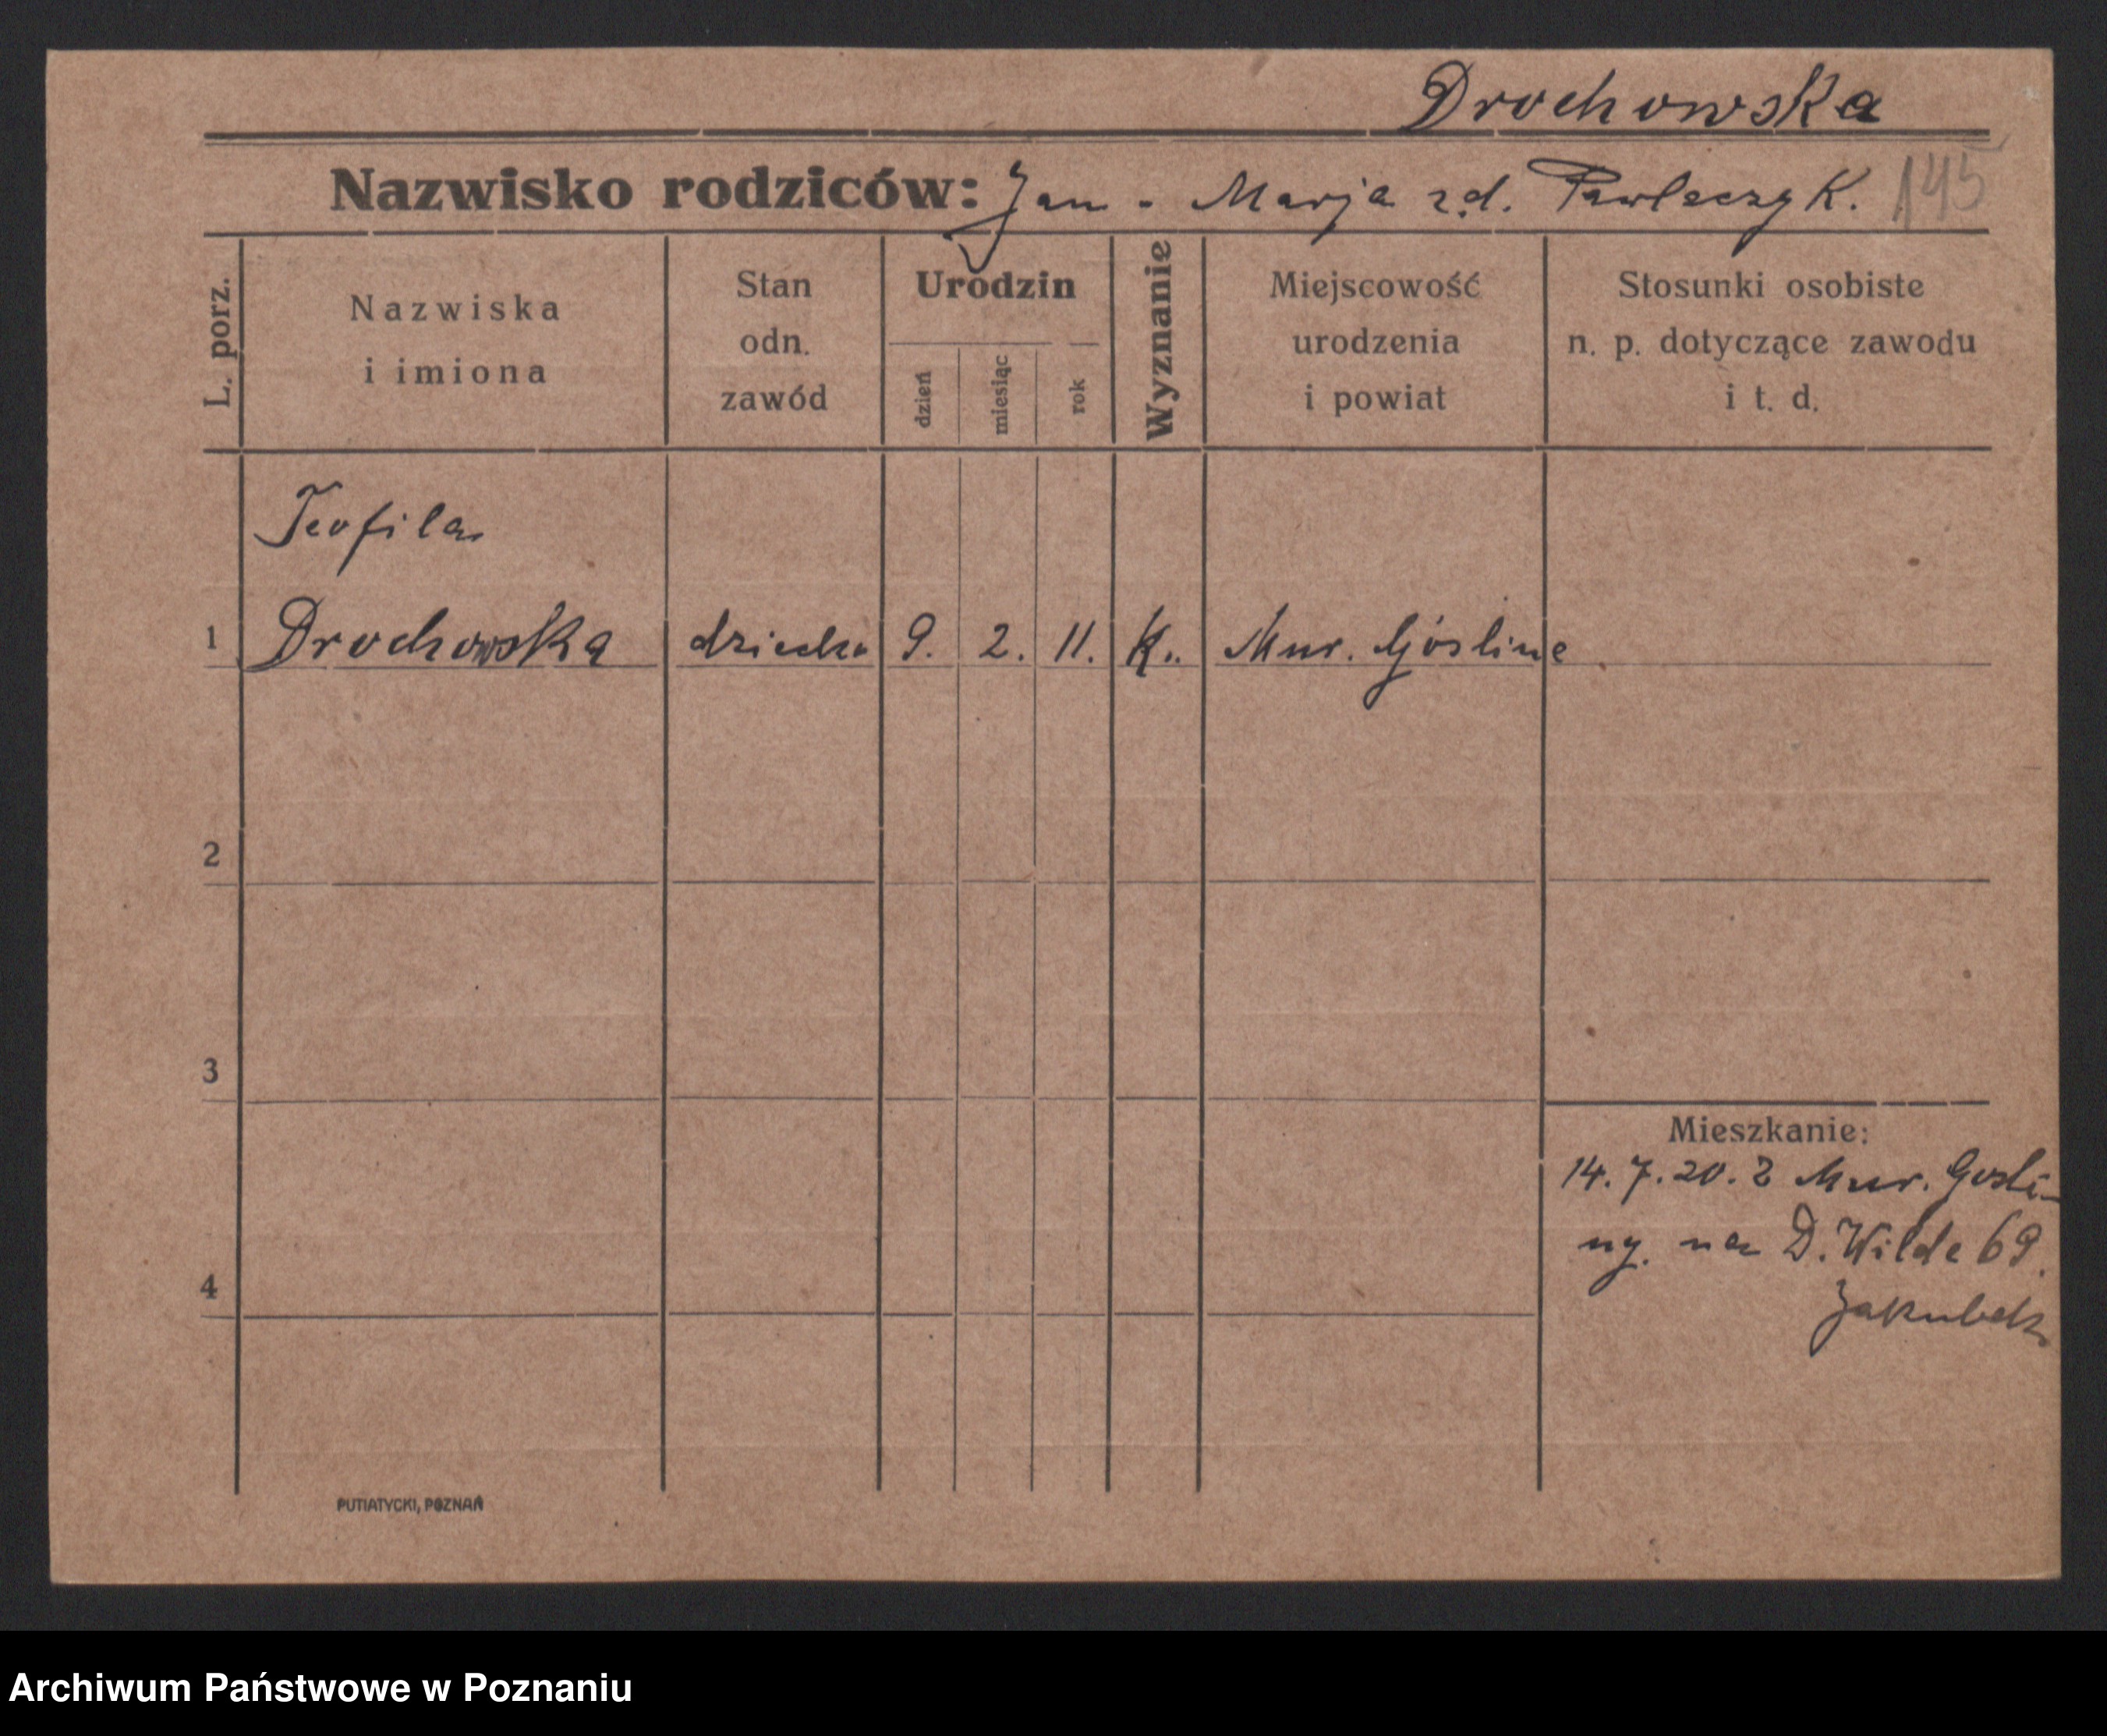 Drochowska
Nazwisko rodziców: Jan - Marja zd. Pawleczyk. 145
L. porz.
Nazwiska
i imiona
Stan
odn.
zawód
Urodzin
dzień
miesiąc
rok
Wyznanie
Miejscowość
urodzenia
i powiat
Stosunki osobiste
n. p. dotyczące zawodu
i t. d.
Teofila
1 Drochowska dziecko 9. 2. 11. K. Mur. Gośline
2
3
4
Mieszkanie:
14. 7. 20. z Mur. Gośli-
ny. na D. Wilde 69.
Jakubek
PUTIATYCKI, POZNAŃ
Archiwum Państwowe w Poznaniu